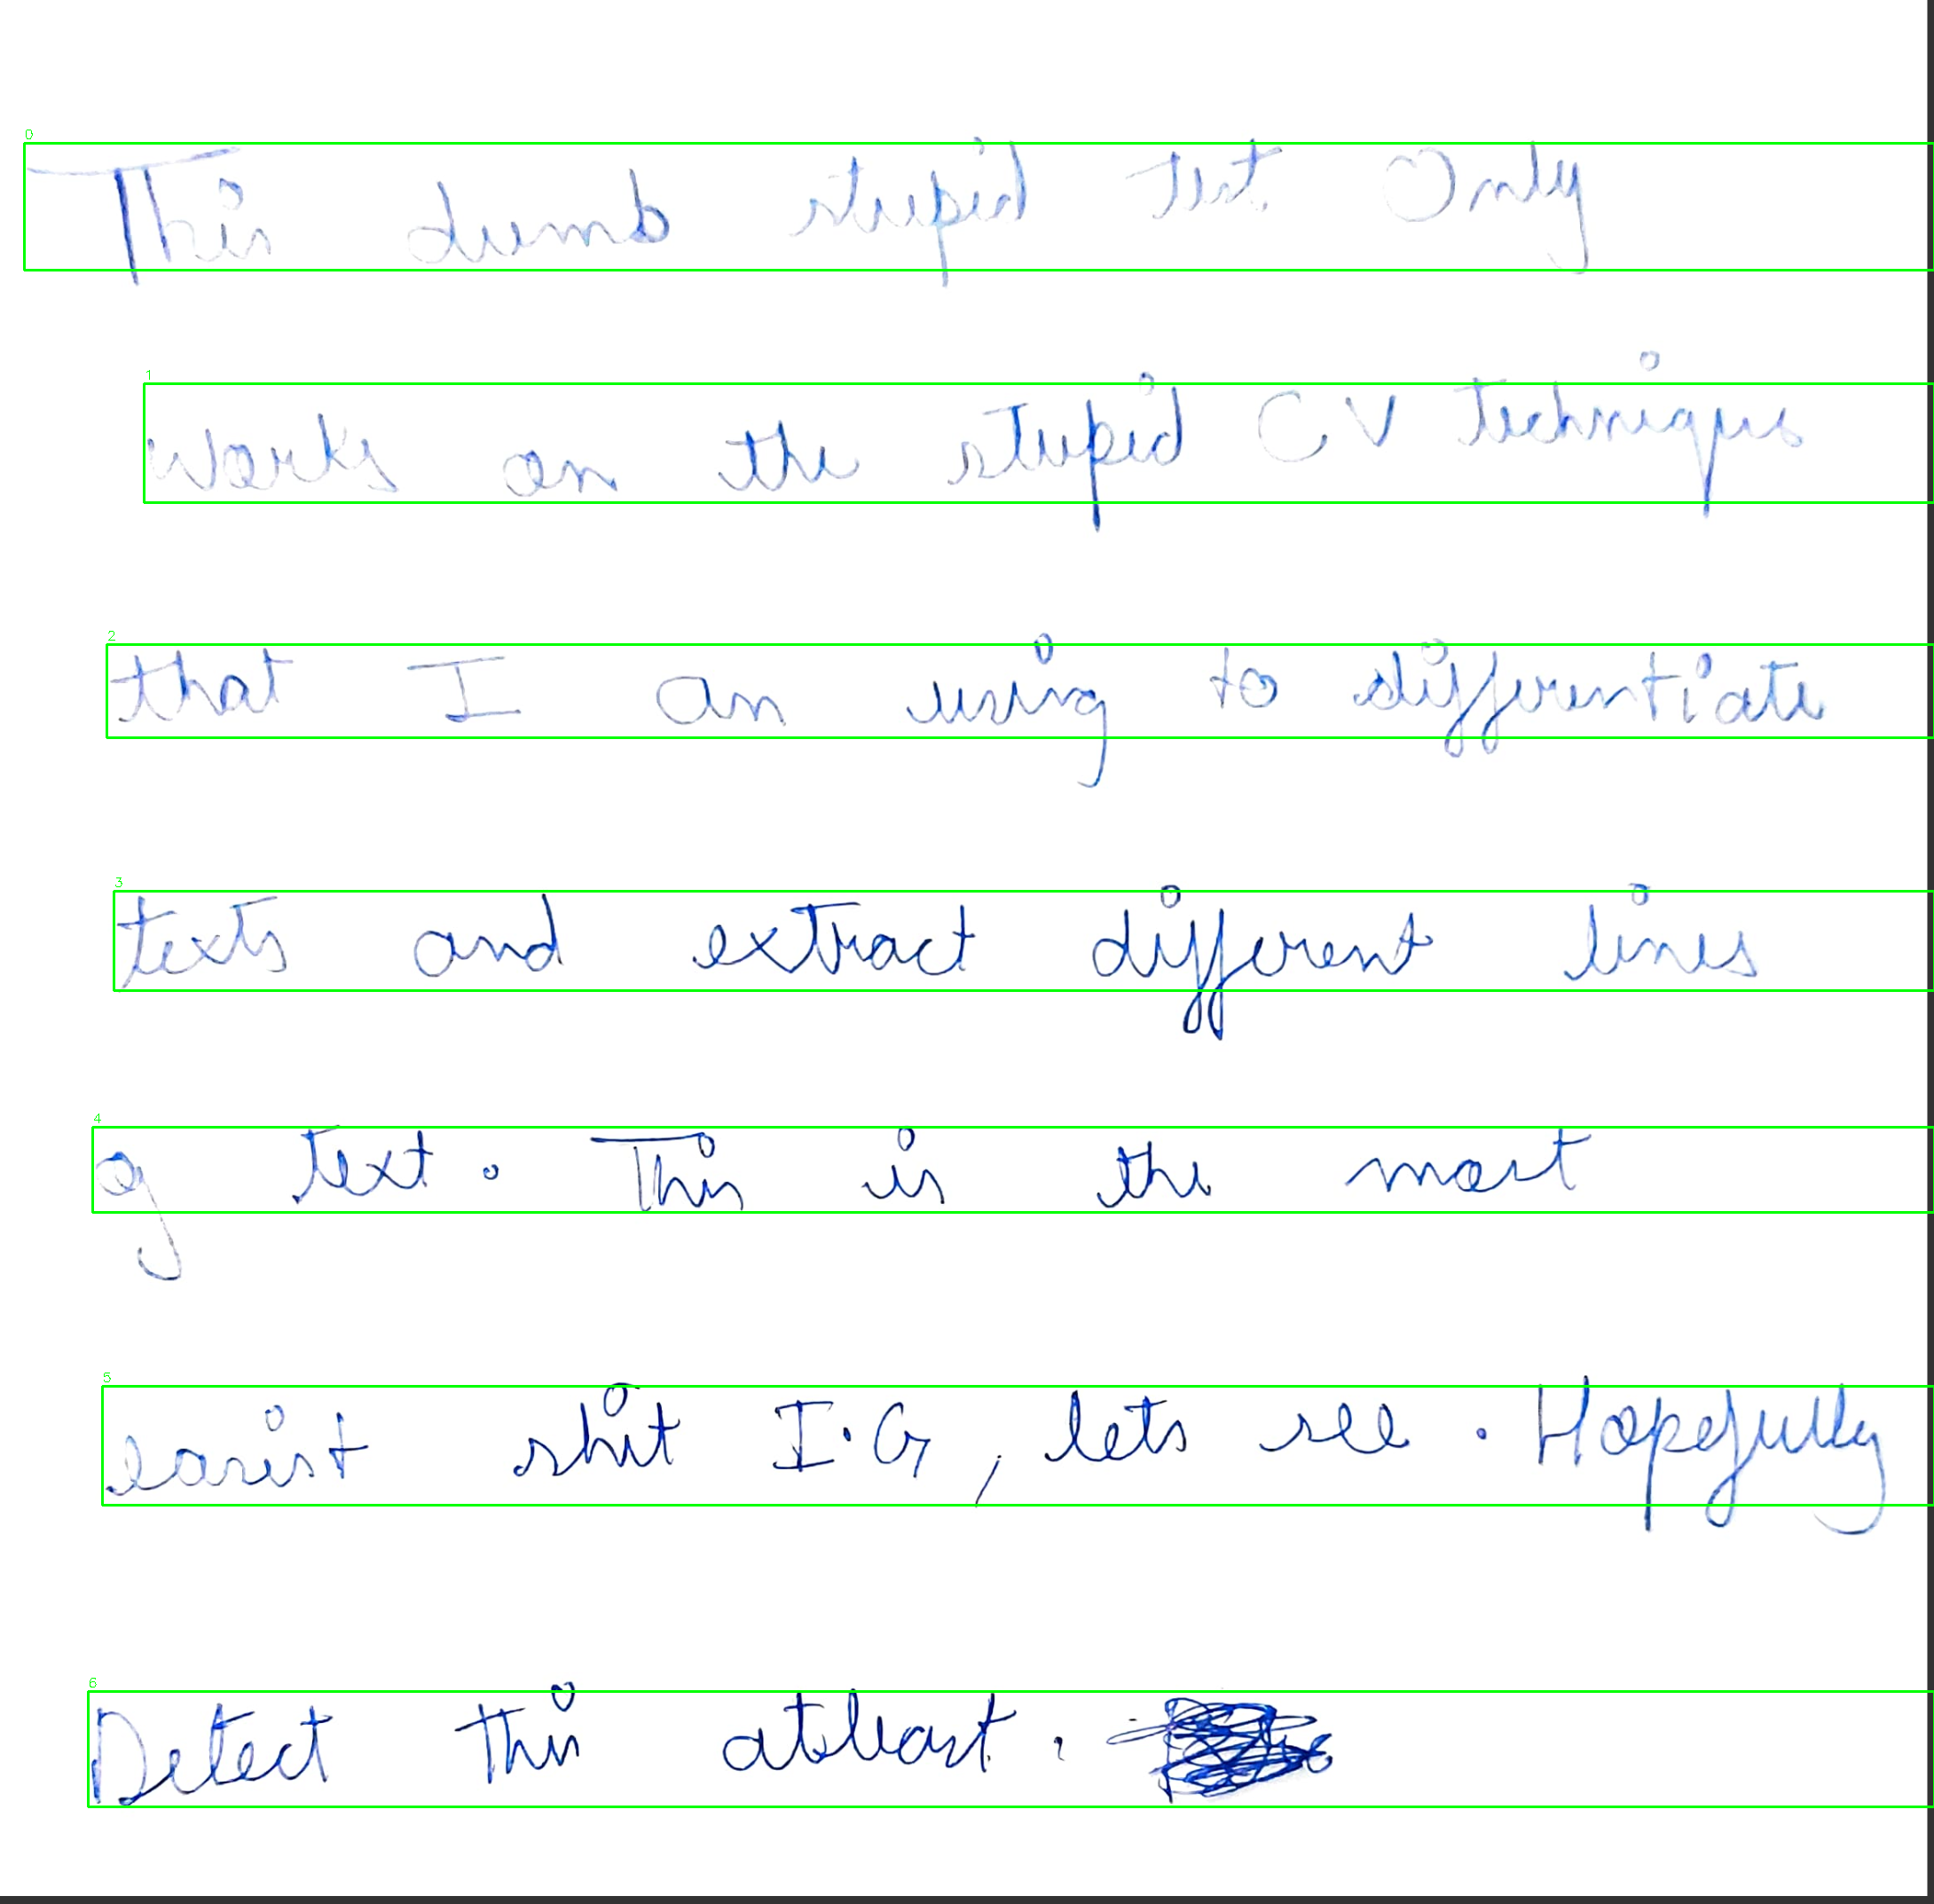 0
This dumb stupid Test Only
1
Works on the stupid CV techniques
2
that I am using to differentiate
3
texts and extract different lines
4
of text. This is the most
5
easist shit I.G, lets see. Hopefully
6
Detect this atleast.